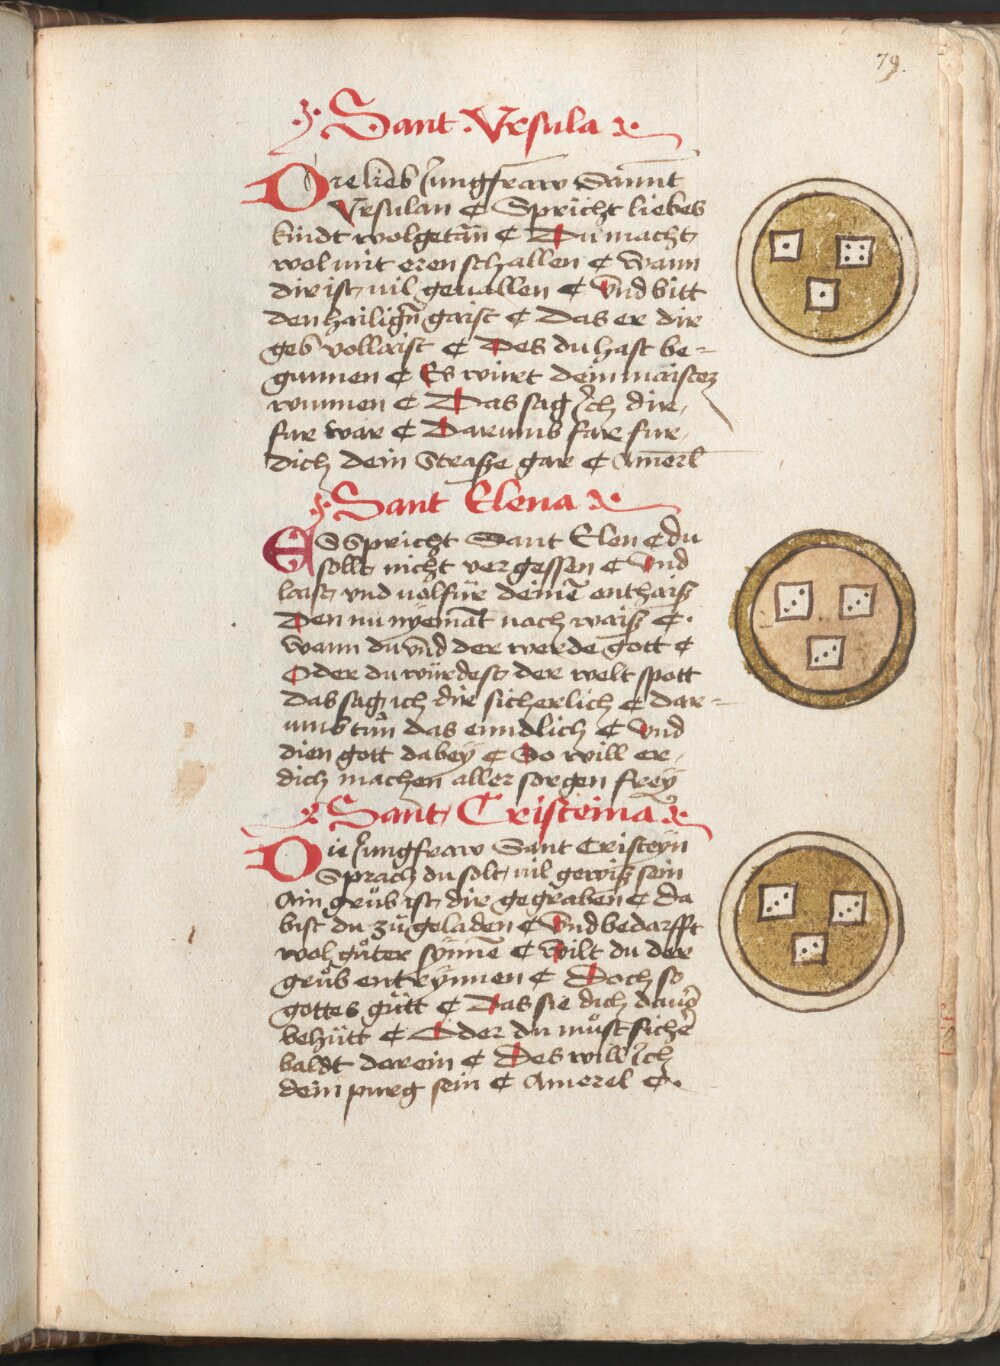 79.
Sant Vrsula
Die lieb Jungfraw Sannt
Vrsulan ¢ Spricht liebes
kindt wolgetan ¢ Du macht
wol mit eren schallen ¢ Wann
dir ist vil geuallen ¢ Vnd bitt
den hailign gaist ¢ Das er dir
geb vollaist ¢ Des du hast be-
gunnen ¢ Es wirt dein maister
wunnen ¢ Das sag Ich dir
fur war ¢ Darumb far fur
dich dein Strasse gar ¢ Amerl
Sant Elena
ES Spricht Sant Elen ¢ du
sollt nicht vergessen ¢ Vnd
laist vnd volfür deinē enthaiß
Den nu nyemāt noch waiß ¢
wann du vnd der werde gott ¢
Oder du würdest der welt spott
Das sag ich dir sicherlich ¢ dar-
umb tun das enndlich ¢ Vnd
dien gott dabey ¢ So will er
dich machen aller sorgen frey
Sant Cristeina
Die Jungfraw Sant Cristeyn
Sprach du solt vil gewiß sein
Ain grub ist dir gegraben ¢ da
bist du zů geladen ¢ Vnd bedarfft
wol gůter synnē ¢ Wilt du der
grůb entrynnen ¢ Doch so
gottes gůtt ¢ Das sie dich dauor
behütt ¢ Oder du můst sicher
baldt darein ¢ Des will Ich
dein purg sein ¢ Amerel ¢.